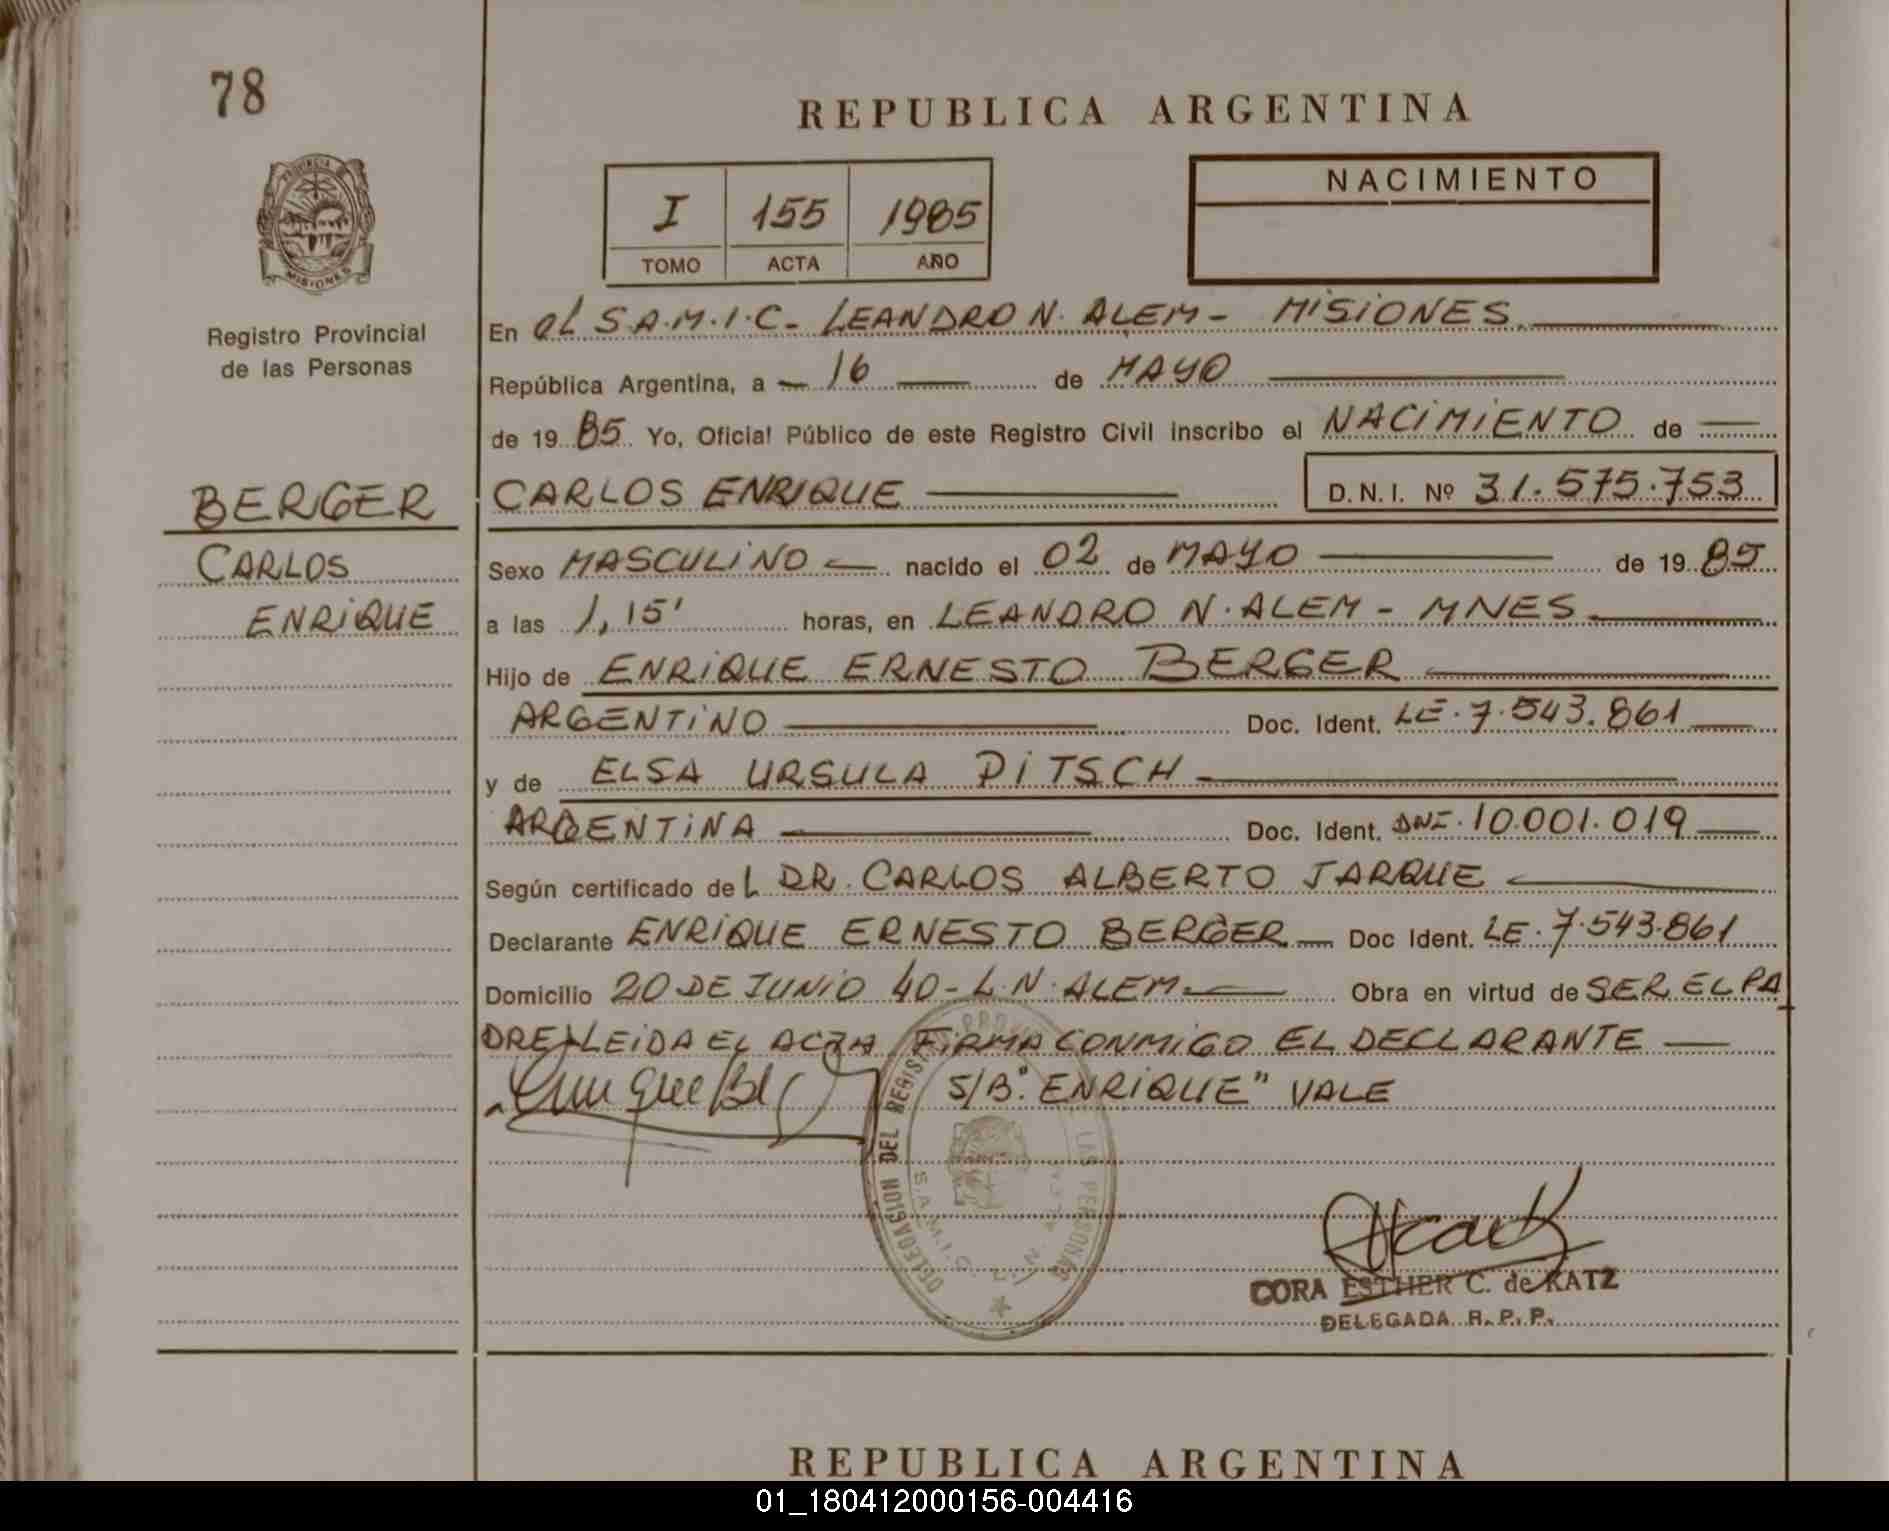 78
REPUBLICA ARGENTINA
I 155 1985
TOMO ACTA AÑO
NACIMIENTO
PROVINCIA
MISIONES
Registro Provincial
de las Personas
BERGER
CARLOS
ENRIQUE
En el S.A.M.I.C. LEANDRO N. ALEM - MISIONES
República Argentina, a 16 de MAYO
de 1985 Yo, Oficial Público de este Registro Civil inscribo el NACIMIENTO de
CARLOS ENRIQUE D.N.I. Nº 31.575.753
Sexo MASCULINO nacido el 02 de MAYO de 1985
a las 1,15' horas, en LEANDRO N. ALEM - MNES
Hijo de ENRIQUE ERNESTO BERGER
ARGENTINO Doc. Ident. LE. 7.543.861
y de ELSA URSULA PITSCH
ARGENTINA Doc. Ident. DNI. 10.001.019
Según certificado del DR. CARLOS ALBERTO JARQUE
Declarante ENRIQUE ERNESTO BERGER Doc Ident. LE. 7.543.861
Domicilio 20 DE JUNIO 40 - L.N. ALEM Obra en virtud de SER EL PA
DRE, LEIDA EL ACTA FIRMA CONMIGO EL DECLARANTE
S/B. "ENRIQUE" VALE
DELEGACION DEL REGISTRO LAS PERSONAS
S.A.M.I.C.
CORA ESTHER C. de KATZ
DELEGADA R.P.P.
REPUBLICA ARGENTINA
01_180412000156-004416